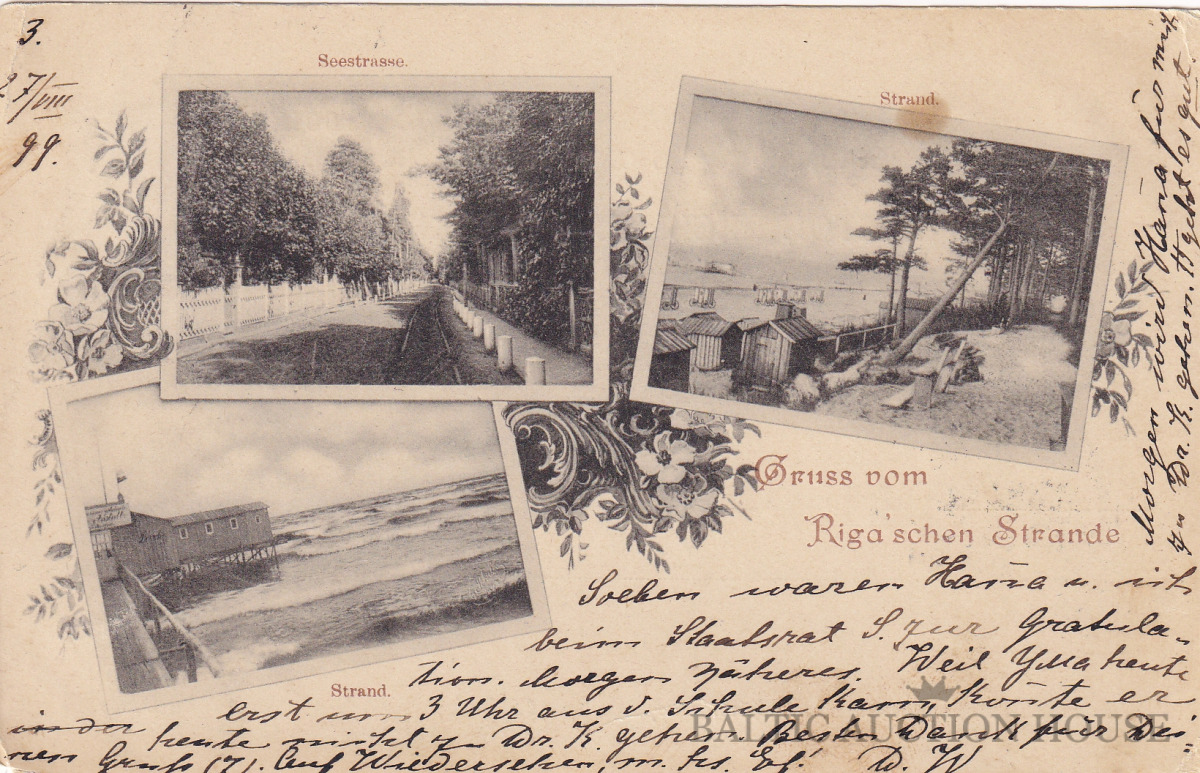 3.
27/VIII
99.
Seestrasse.
Strand.
Strand.
Gruss vom
Riga'schen Strande
Soeben waren Hanna u. ich
beim Staatsrat S. zur Gratula-
tion. Morgen Näheres. Weil heute
erst um 3 Uhr aus d. Schule kam, konnte er
heute nicht zu Dr. K. gehen. Besten Dank für Dei-
nen Gruß (7). Auf Wiedersehen, m. D. W
Morgen wird Hanna für mich
zu Dr. K. gehen. geht es gut.
BALTIC AUCTION HOUSE